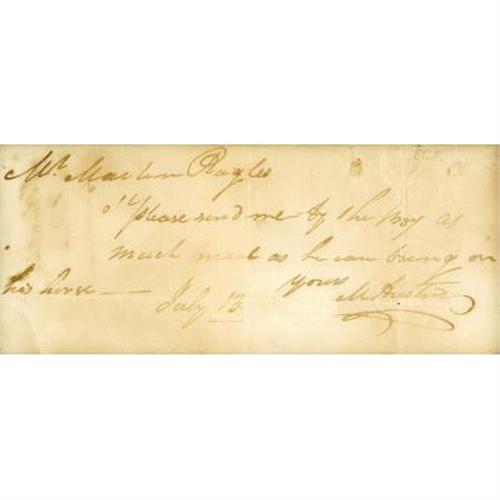 Mr. Martin Rugles
Sr. please send me by the boy as
much meal as he can bring on
his horse — yours
July 13 M Austin